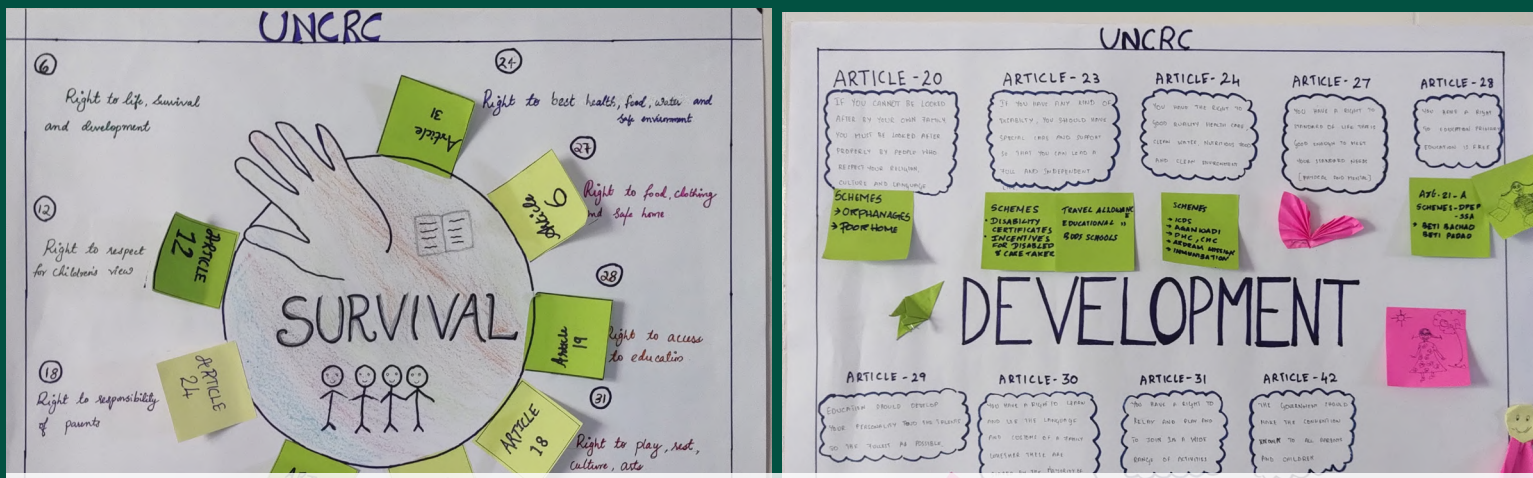 UNCRC
6
Right to life, survival
and development
12
Right to respect
for children's view
18
Right to responsibility
of parents
24
Right to best health, food, water and
safe environment
27
Right to food, clothing
and safe home
28
Right to access
to education
31
Right to play, rest,
culture, arts
Article
31
Article
6
Article
19
ARTICLE
18
ARTICLE
24
ARTICLE
12
SURVIVAL
UNCRC
ARTICLE-20
IF YOU CANNOT BE LOOKED
AFTER BY YOUR OWN FAMILY,
YOU MUST BE LOOKED AFTER
PROPERLY BY PEOPLE WHO
RESPECT YOUR RELIGION,
CULTURE AND LANGUAGE
SCHEMES
→ ORPHANAGES
→ POOR HOME
ARTICLE-23
IF YOU HAVE ANY KIND OF
DISABILITY, YOU SHOULD HAVE
SPECIAL CARE AND SUPPORT
SO THAT YOU CAN LEAD A
FULL AND INDEPENDENT
SCHEMES
• DISABILITY
CERTIFICATES
• INCENTIVES
FOR DISABLED
& CARE TAKER
TRAVEL ALLOWANCE
EDUCATIONAL "
SCHOOLS
ARTICLE-24
YOU HAVE THE RIGHT TO
GOOD QUALITY HEALTH CARE,
CLEAN WATER NUTRITIOUS FOOD
AND CLEAN ENVIRONMENT
SCHEMES
→ ICDS
→ PHC, CHC
→ IMMUNIZATION
ARTICLE-27
YOU HAVE A RIGHT TO
STANDARD OF LIFE THAT IS
GOOD ENOUGH TO MEET
YOUR STANDARD NEEDS
[PHYSICAL AND MENTAL]
ARTICLE-28
YOU HAVE A RIGHT
TO EDUCATION PRIMARY
EDUCATION IS FREE
21-A
SCHEMES-DPEP
-SSA
• BETI BACHAO
BETI PADAO
DEVELOPMENT
ARTICLE-29
EDUCATION SHOULD DEVELOP
YOUR PERSONALITY AND TALENTS
TO THE FULLEST AS POSSIBLE
ARTICLE-30
YOU HAVE A RIGHT TO LEARN
AND USE THE LANGUAGE
AND CUSTOMS OF A FAMILY
WHETHER THESE ARE
ARTICLE-31
YOU HAVE A RIGHT TO
RELAX AND PLAY AND
TO JOIN IN A WIDE
RANGE OF ACTIVITIES
ARTICLE-42
THE GOVERNMENT SHOULD
MAKE THE CONVENTION
KNOWN TO ALL PARENTS
AND CHILDREN